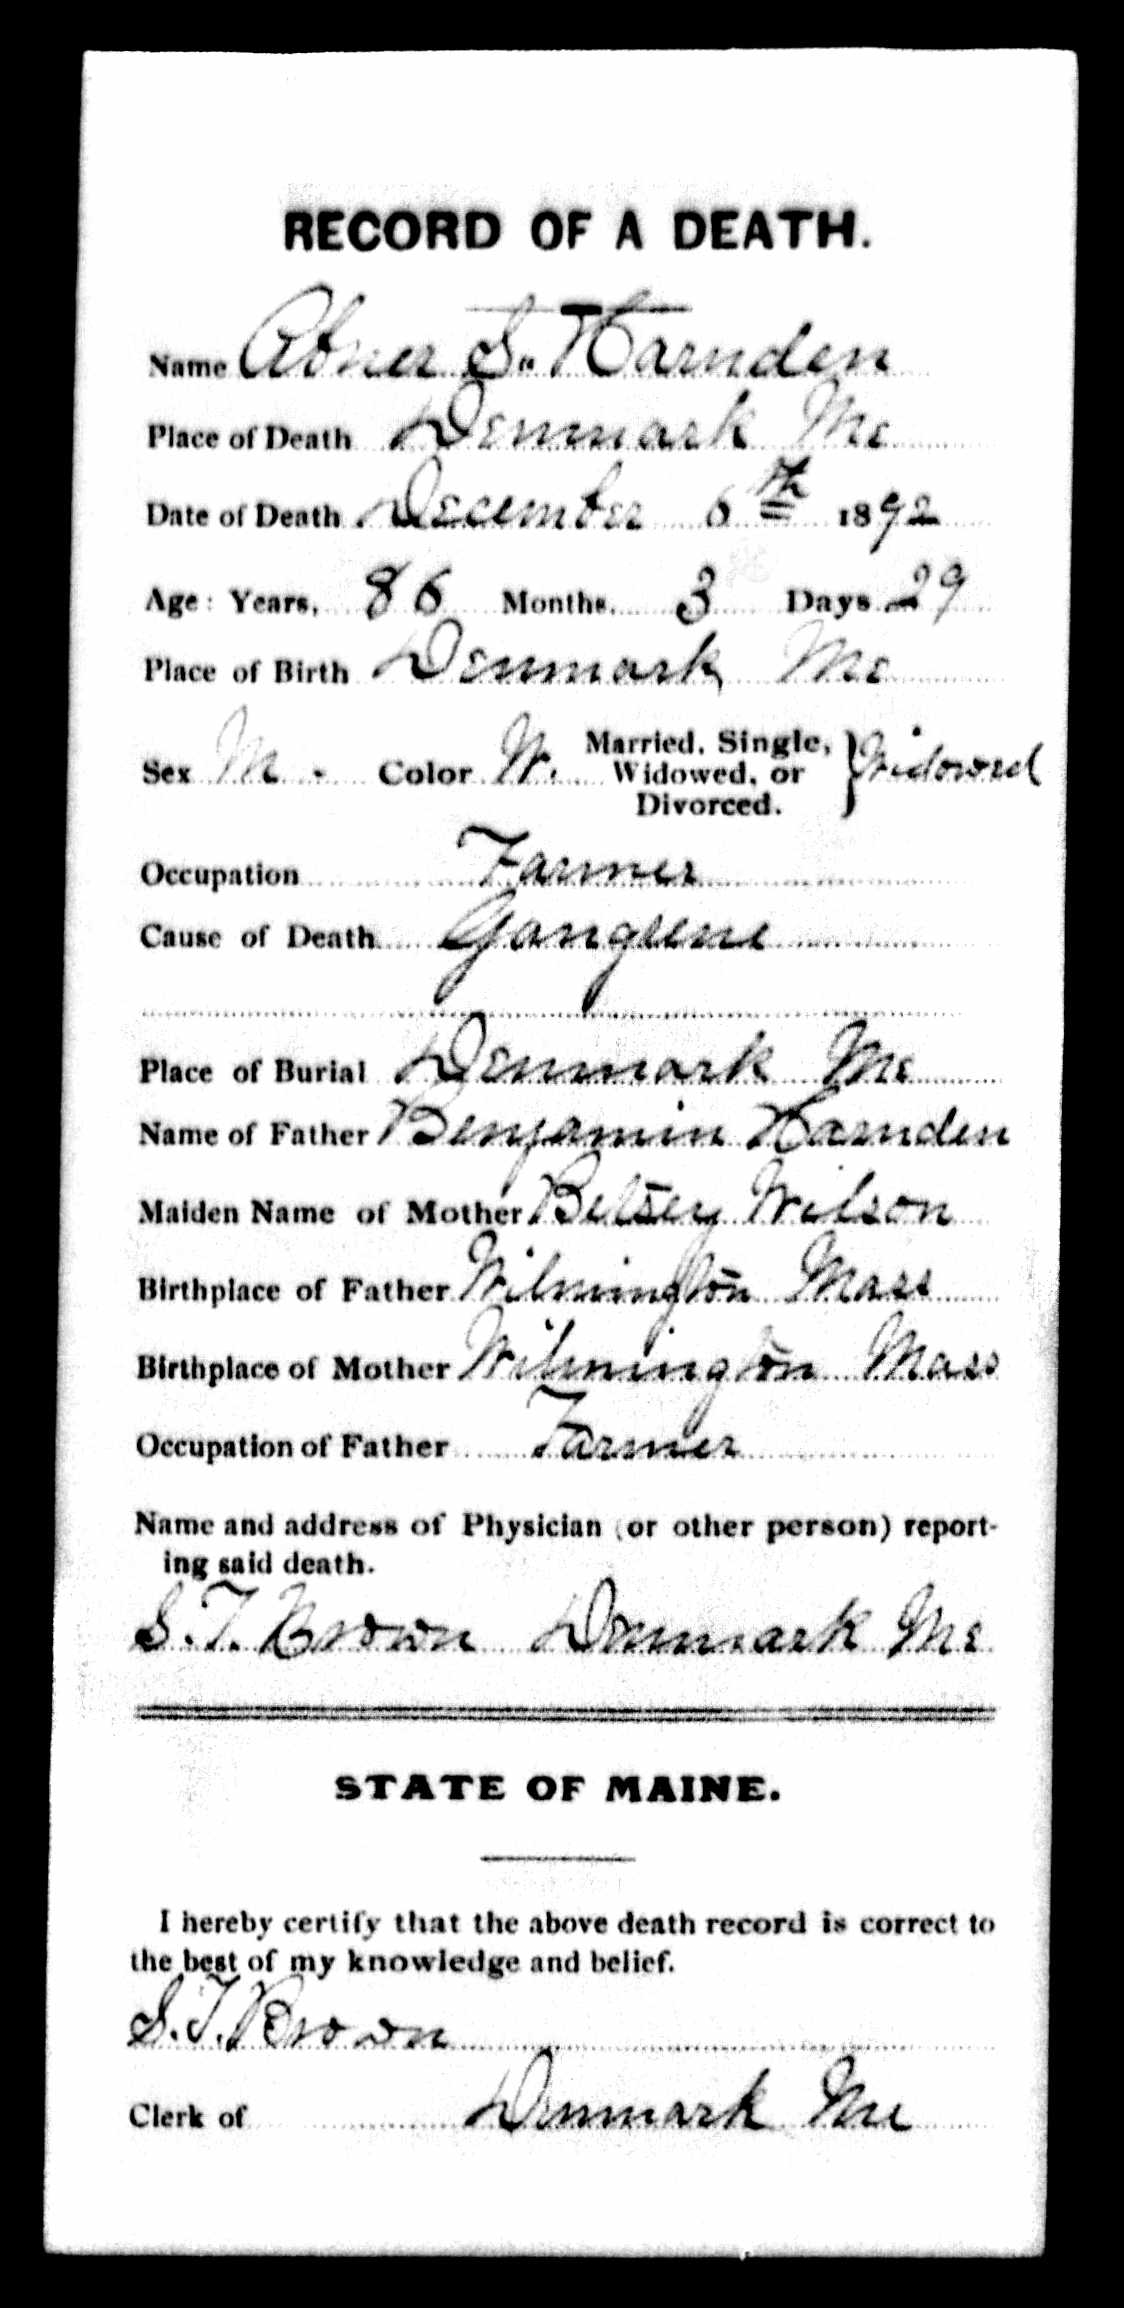 RECORD OF A DEATH.
Name Abner S. Harnden
Place of Death Denmark Me
Date of Death December 6th 1892
Age: Years, 86 Months, 3 Days 29
Place of Birth Denmark Me
Sex M. Color W. Married, Single, Widowed, or Divorced. } Widowed
Occupation Farmer
Cause of Death Gangrene
Place of Burial Denmark Me
Name of Father Benjamin Harnden
Maiden Name of Mother Betsey Wilson
Birthplace of Father Wilmington Mass
Birthplace of Mother Wilmington Mass
Occupation of Father Farmer
Name and address of Physician (or other person) report-
ing said death.
S. T. Brown Denmark Me
STATE OF MAINE.
I hereby certify that the above death record is correct to
the best of my knowledge and belief.
S. T. Brown
Clerk of Denmark Me